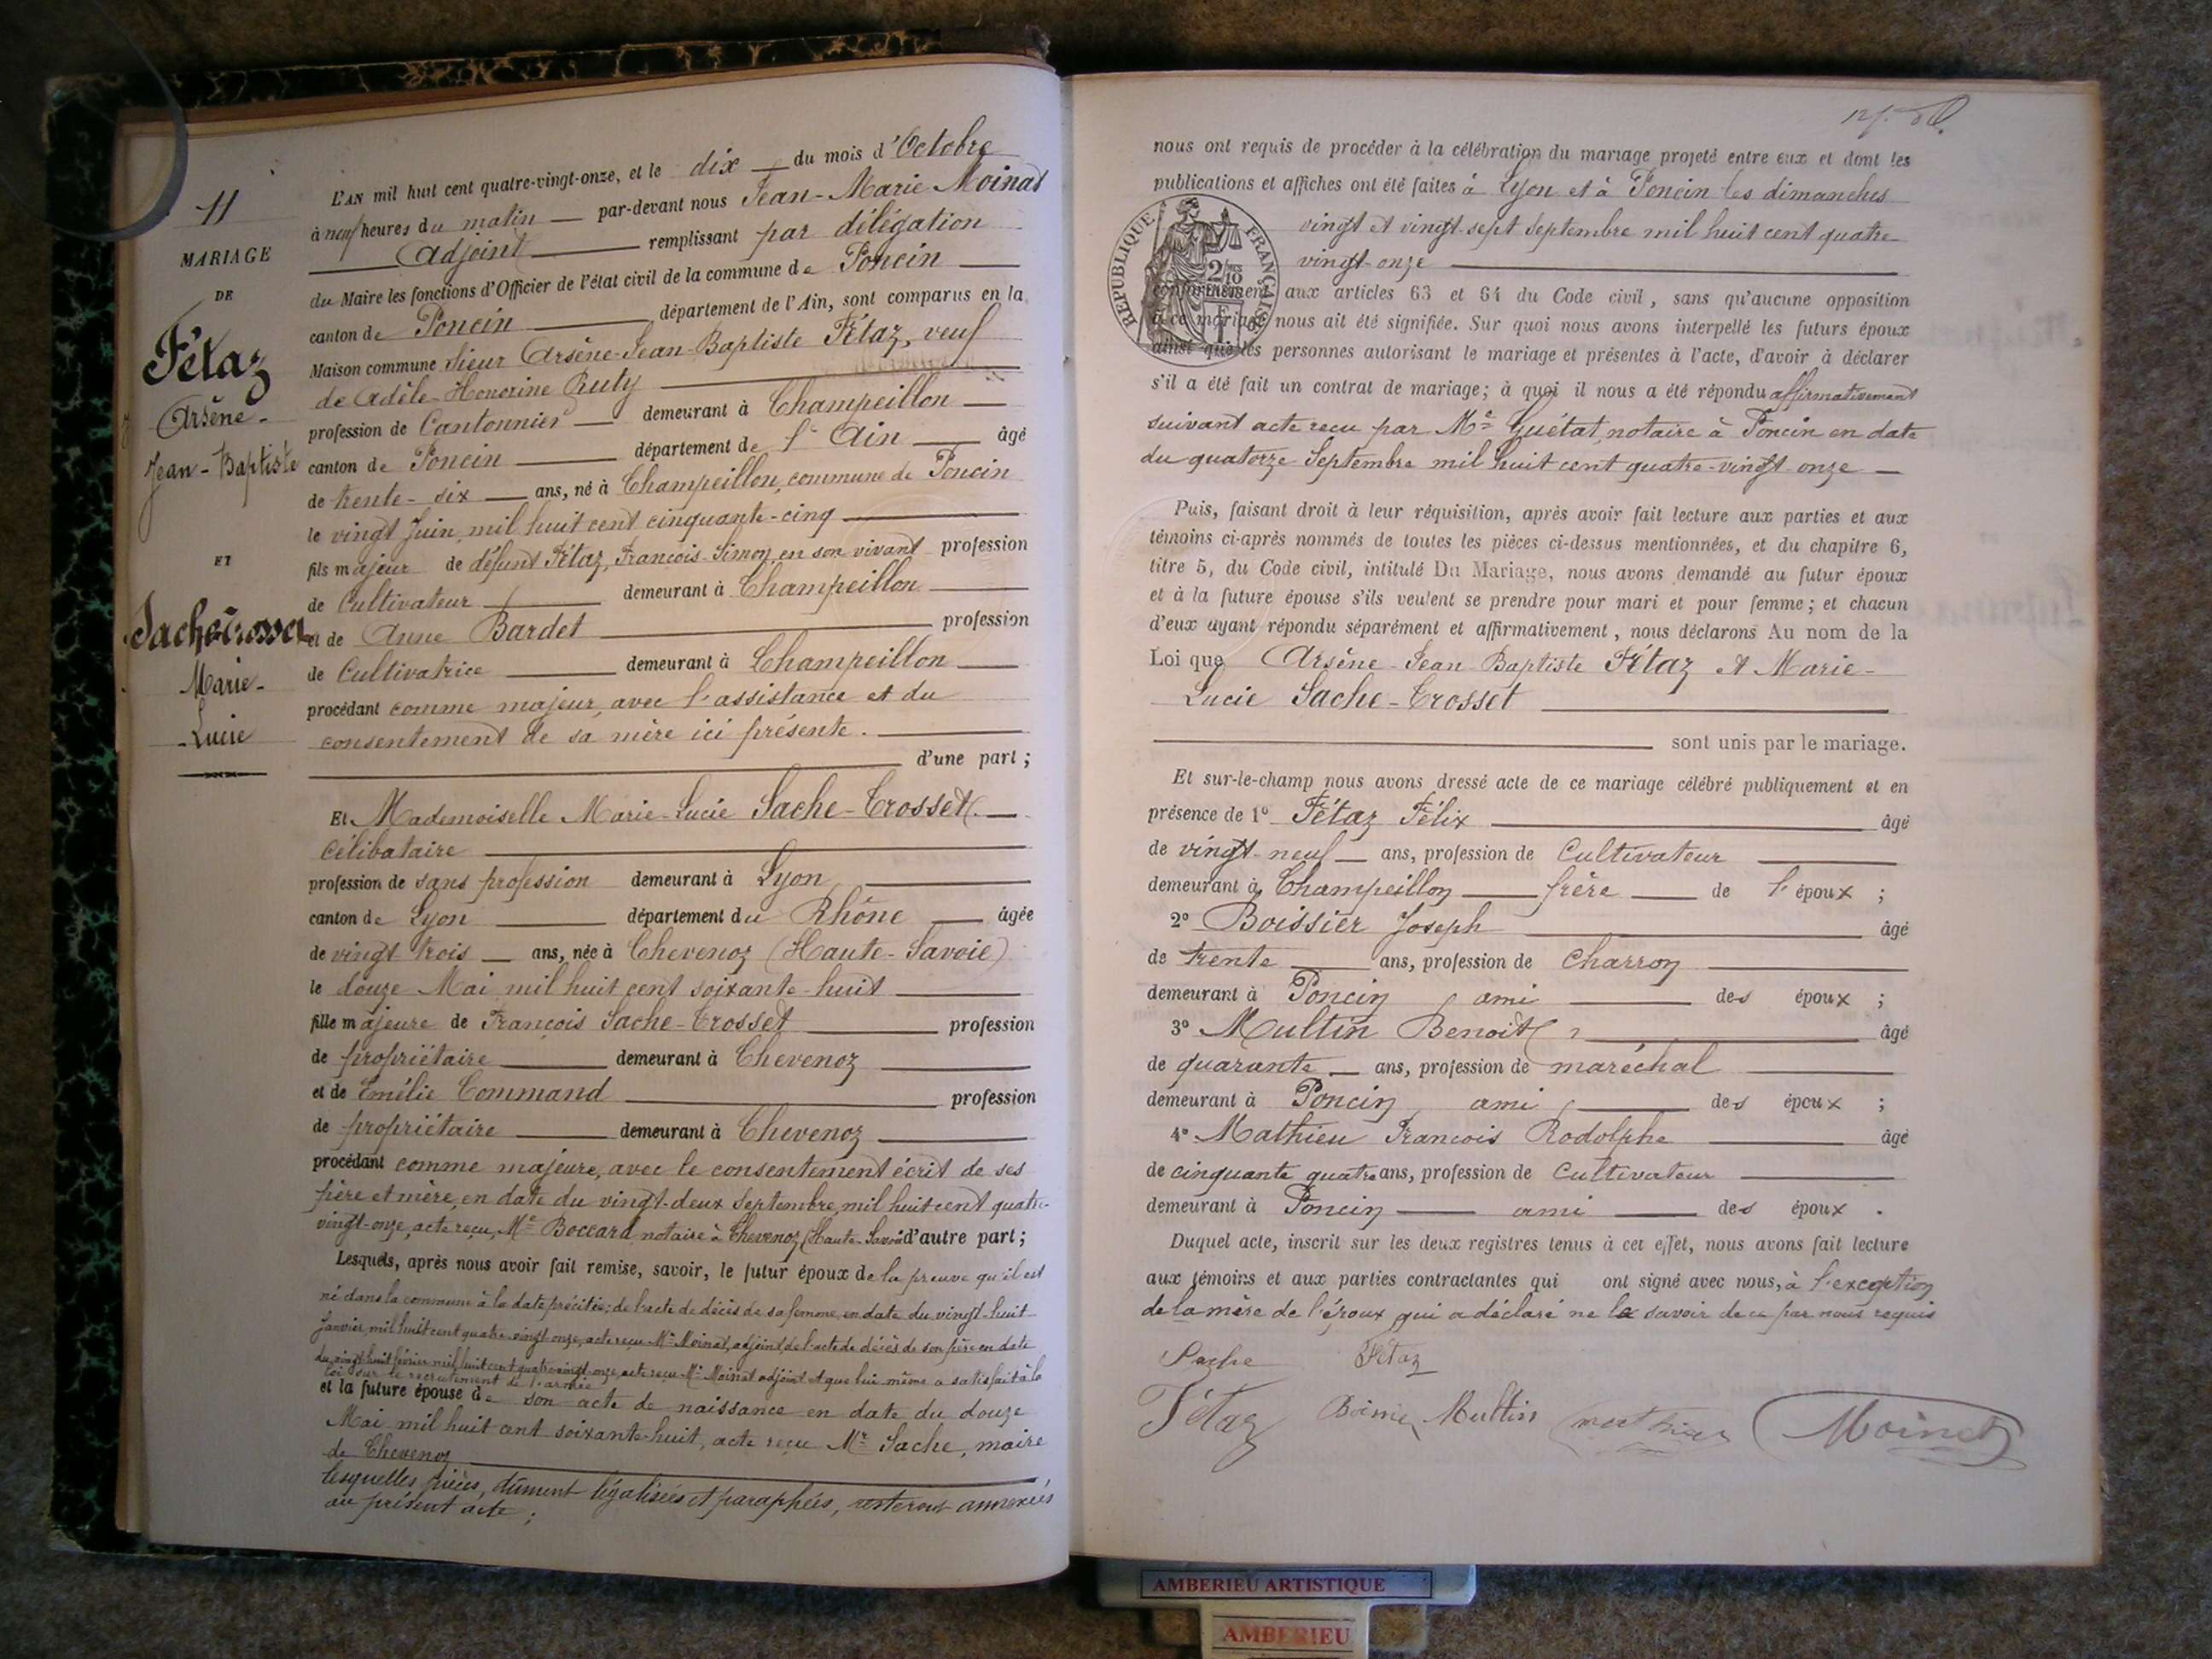 11
MARIAGE
DE
Fétaz
Arsène-
Jean-Baptiste
ET
Sache-Crosset
Marie-
-Lucie
L'AN mil huit cent quatre-vingt-onze, et le dix du mois d'Octobre
à neuf heures du matin par-devant nous Jean-Marie Moinat
Adjoint remplissant par délégation
du Maire les fonctions d'Officier de l'état civil de la commune de Poncin
canton de Poncin département de l'Ain, sont comparus en la
Maison commune Sieur Arsène-Jean-Baptiste Fétaz, veuf
de Adèle-Honorine Ruty
profession de Cantonnier demeurant à Champeillon
canton de Poncin département de l'Ain âgé
de trente-six ans, né à Champeillon, commune de Poncin
le vingt Juin mil huit cent cinquante-cinq
fils majeur de défunt Fétaz, François-Simon, en son vivant profession
de Cultivateur demeurant à Champeillon
et de Anne Bardet profession
de Cultivatrice demeurant à Champeillon
procédant comme majeur, avec l'assistance et du
consentement de sa mère ici présente.
d'une part ;
Et Mademoiselle Marie-Lucie Sache-Crosset.
Célibataire
profession de sans profession demeurant à Lyon
canton de Lyon département du Rhône âgée
de vingt-trois ans, née à Chevenoz (Haute-Savoie)
le douze Mai mil huit cent soixante-huit
fille majeure de François Sache-Crosset profession
de propriétaire demeurant à Chevenoz
et de Emélie Command profession
de propriétaire demeurant à Chevenoz
procédant comme majeure, avec le consentement écrit de ses
père et mère, en date du vingt-deux Septembre, mil huit cent quatre-
vingt-onze, acte reçu, Me Boccard notaire à Chevenoz (Haute-Savoie d'autre part ;
Lesquels, après nous avoir fait remise, savoir, le futur époux de la preuve qu'il est
né dans la commune à la date précitée ; de l'acte de décès de sa femme, en date du vingt-huit
Janvier, mil huit cent quatre-vingt-onze, acte reçu Mr Moinat, adjoint, de l'acte de décès de son père en date
du vingt-huit février mil huit cent quatre-vingt-onze, acte reçu Mr Moinat adjoint et que lui même a satisfait à la
loi sur le recrutement de l'armée
et la future épouse de son acte de naissance en date du douze
Mai mil huit cent soixante-huit, acte reçu Mr Sache, maire
de Chevenoz
lesquelles pièces, dûment légalisées et paraphées, resteront annexées
au présent acte ;
nous ont requis de procéder à la célébration du mariage projeté entre eux et dont les
publications et affiches ont été faites à Lyon et à Poncin les dimanches
vingt et vingt-sept Septembre mil huit cent quatre-
vingt-onze
RÉPUBLIQUE FRANÇAISE
conformément aux articles 63 et 64 du Code civil, sans qu'aucune opposition
à ce mariage nous ait été signifiée. Sur quoi nous avons interpellé les futurs époux
ainsi que les personnes autorisant le mariage et présentes à l'acte, d'avoir à déclarer
s'il a été fait un contrat de mariage ; à quoi il nous a été répondu affirmativement
suivant acte reçu par Me Guétat, notaire à Poncin en date
du quatorze Septembre mil huit cent quatre-vingt-onze
Puis, faisant droit à leur réquisition, après avoir fait lecture aux parties et aux
témoins ci-après nommés de toutes les pièces ci-dessus mentionnées, et du chapitre 6,
titre 5, du Code civil, intitulé Du Mariage, nous avons demandé au futur époux
et à la future épouse s'ils veulent se prendre pour mari et pour femme ; et chacun
d'eux ayant répondu séparément et affirmativement, nous déclarons Au nom de la
Loi que Arsène-Jean-Baptiste Fétaz et Marie-
Lucie Sache-Crosset
sont unis par le mariage.
Et sur-le-champ nous avons dressé acte de ce mariage célébré publiquement et en
présence de 1° Fétaz Félix âgé
de vingt-neuf ans, profession de Cultivateur
demeurant à Champeillon frère de l'époux ;
2° Boissier Joseph âgé
de trente ans, profession de Charron
demeurant à Poncin, ami des époux ;
3° Multin Benoît âgé
de quarante ans, profession de maréchal
demeurant à Poncin, ami, des époux ;
4° Mathieu François Rodolphe âgé
de cinquante quatre ans, profession de Cultivateur
demeurant à Poncin ami des époux.
Duquel acte, inscrit sur les deux registres tenus à cet effet, nous avons fait lecture
aux témoins et aux parties contractantes qui ont signé avec nous, à l'exception
de la mère de l'époux qui a déclaré ne le savoir de ce par nous requis
Sache Fétaz
Fétaz Multin Mathieu Moinat
AMBERIEU ARTISTIQUE
AMBERIEU